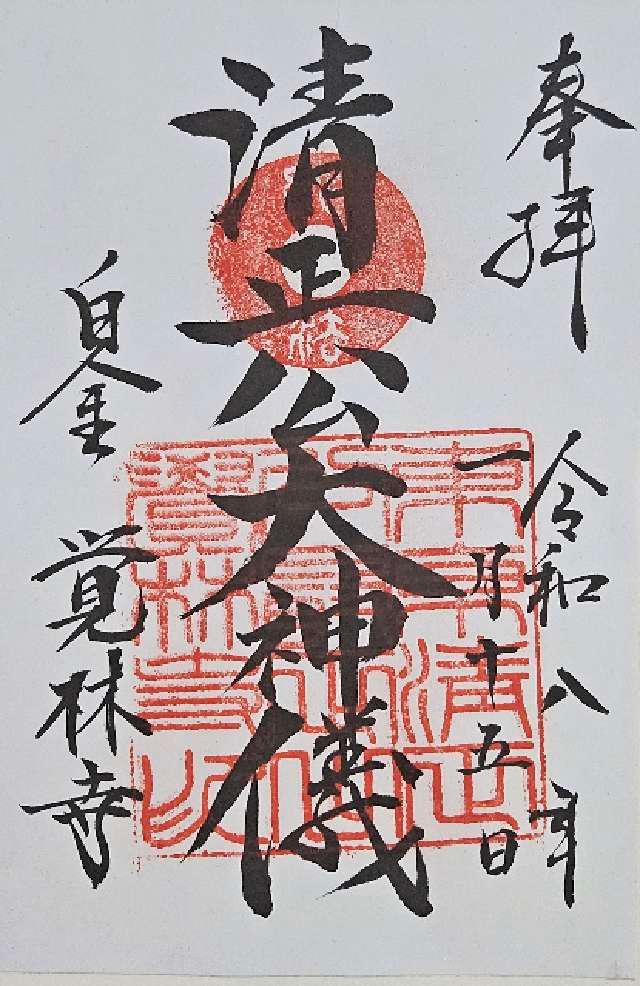 奉拝
令和八年
一月十五日
清正公大神儀
白金
覚林寺